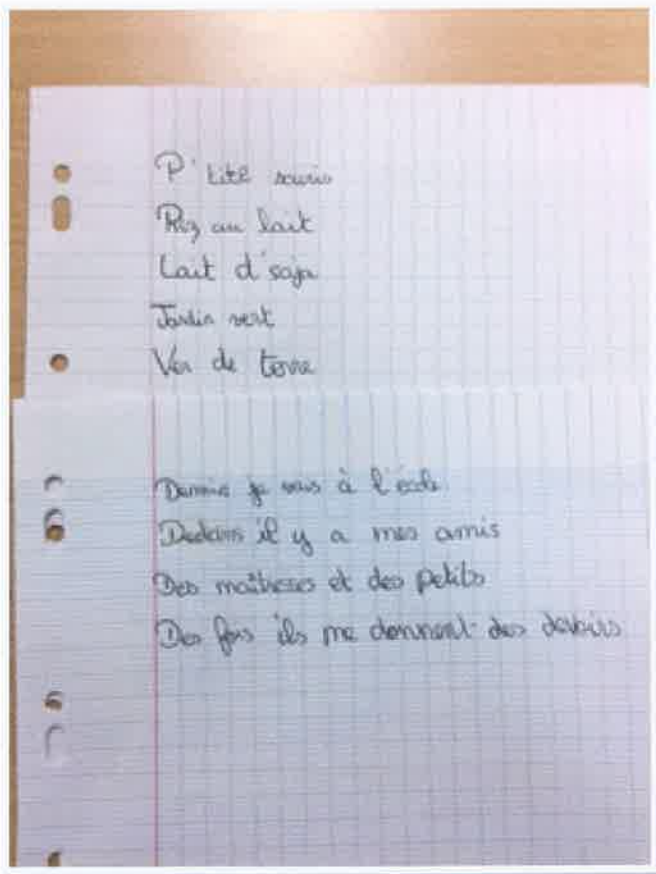 P'tite souris
Riz au lait
Lait d'soja
Jardin vert
Ver de terre
Demain je vais à l'école.
Dedans il y a mes amis
Des maîtresses et des petits
Des fois ils me donnent des devoirs